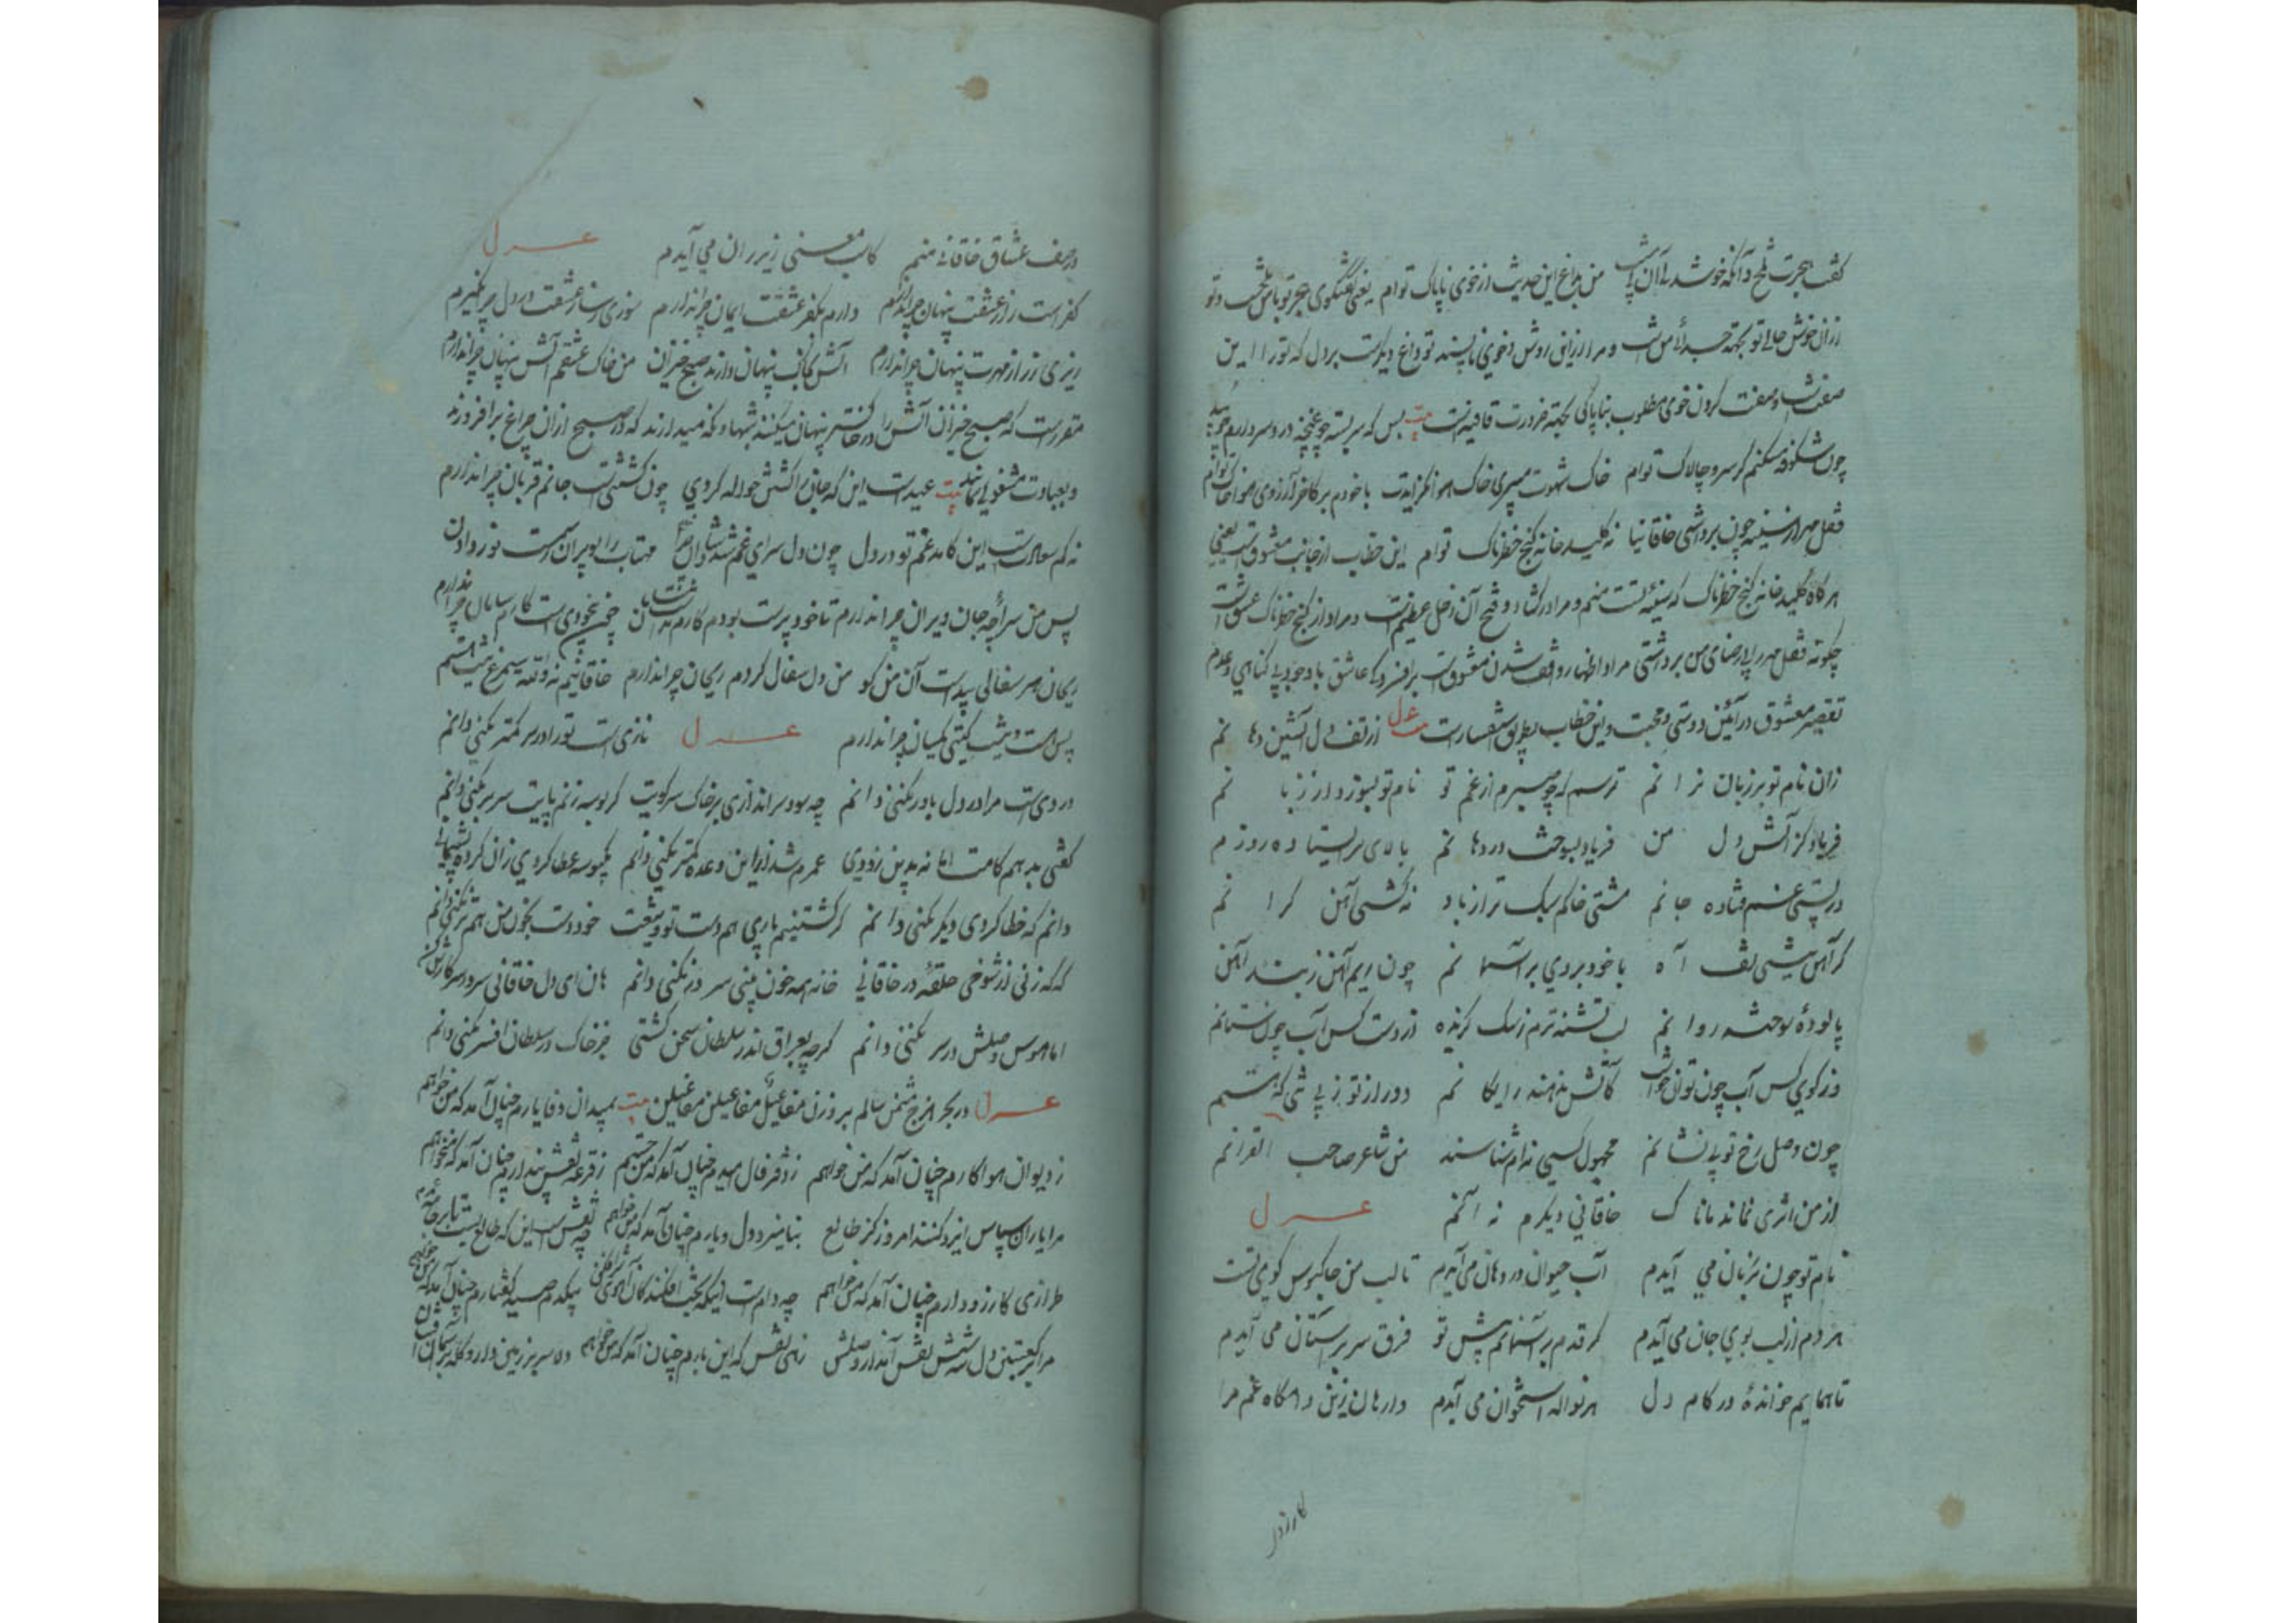 گفت هجرت تلخ وانکه خوش من بداغ این حدیث از خوی ناپاک توام یعنی گفتگوی هجر تو با من تلخ است و تو
ازان خوش حالی تو بجهة من است و مرا ازین روش و خوی ناپسند تو داغ دیگرست بر دل که تو را این
صفت است و صفت کردن خوی مطلوب بناپاکی بجهة ضرورت قافیه است بیت بس که سربسته چو غنچه درد سر دارم چو بید
چون شکوفه نشکنم کز سرو چالاک توام خاک شهوت میبری خاک هوا با خودم بر کاخر آرزوی هوا خاک توام
قفل مهر از سینه چون برداشتی خاقانیا نه کلید خانه گنج خطرناک توام این خطاب از جانب معشوق است یعنی
هر گاه کلید خانه گنج خطرناک که سینه تست منم و مرا در کشاد و فتح آن دخل عظیم است و مراد از گنج خطرناک عشق است
چگونه قفل مهر را بی رضای من برداشتی مراد اظهار واقف شدن معشوق است عاشق با وجود بی گناهی و عدم
تقصیر معشوق در آئین دوستی و محبت و این خطاب بطریق استفسار است غزل از تف دل آتشین دها نم
زان نام تو بر زبان نرا نم ترسم که چو میبرم از غم تو نام تو بسوزد از زبا نم
فریاد کز آتش دل من فریاد بسوخت در دها نم بالای سر ایستا ده روز م
در پستی غم فتاده جا نم مشتی خاکم سبک تر از باد نه کشتی آهن گرا نم
گر آهن نیستی تف آ ه با خود بردی بر آسما نم چون ریم آهن زبند آهن
پالوده سوخته روا نم لب تشنه ترم ز سگ گزیده از دست کس آب چون ستانم
وز کوی کس آب چون توان خواست کاتش ندهند رایگا نم دور از تو ز بی تنی که هستم
چون وصل رخ تو بی نشا نم مجهول کسی نه ام شناسند من شاعر صاحب القرانم
از من اثری نماند مانا ک خاقانی دیگرم نه آنم غزل
نام تو چون بزبان می آیدم آب حیوان در دهان می آیدم تا لب من خاکبوس کوی تست
هر دم از لب بوی جان می آیدم گر قدم بر آسمانم پیش تو فرق سر بر آستان می آیدم
تا همایم خوانده در کام دل هر نواله استخوان می آیدم وارهان زین دامگاه غم مرا
کارزو
در صف عشاق خاقانی منم کاب معنی زیر ران می آیدم غزل
کفر است راز عشقت پنهان چرا ندارم دارم بکفر عشقت ایمان چرا ندارم سوزی ز ساز عشقت در دل چرا نگیرم
رمزی ز راز مهرت پنهان چرا ندارم آتش بخاک پنهان دارند صبح خیزان من خاک عشقم آتش پنهان چرا ندارم
مقررست که صبح خیزان آتش را در خاکستر پنهان میکنند شبها و نگه میدارند که در صبح ازان چراغ برافروزند
و بعبادت مشغولی نمایند بیت عیدست این که جان را کشتن حواله کردی چون کشتنی است جانم قربان چرا ندارم
نه کم سعادتست این کامد غم تو در دل چون دل سرای غم شد شادان چرا مهتاب را بویران رسمست نور دادن
پس من سراچه جان ویران چرا ندارم تا خود پرست بودم کارم نداشت سامان چون بیخودی است کارم سامان چرا ندارم
ریحان هر سفالی پیداست آن من کو من دل سفال کردم ریحان چرا ندارم خاقانیم نه والله سیمرغ نیست هستم
پس هست و نیست گیتی یکسان چرا ندارم غزل نازی است تو را در سر کمتر نکنی دانم
دردی است مرا در دل باور نکنی دانم چه سود سراندازی بر خاک سر کویت گر بوسه زنم پایت سر بر نکنی دانم
گفتی بدهم کامت اما نه بدین زودی عمرم شد ازین وعده کمتر نکنی دانم یکبوسه عطا کردی زان کرده پشیمانی
دانم که خطا کردی دیگر نکنی دانم گر کشتنیم باری هم دست تو و تیغت خود دست بخون من هم تر نکنی دانم
گه گه زنی از شوخی حلقه در خاقانی خانه همه خون بینی سر در نکنی دانم هان ای دل خاقانی سر در سر کارش کن
اما هوس وصلش در سر نکنی دانم گر چه بعراق اندر سلطان سخن گشتی جز خاک در سلطان افسر نکنی دانم
غزل در بحر هزج مثمن سالم بر وزن مفاعیلن مفاعیلن مفاعیلن بیت بمیدان وفا یارم چنان آمد که من خواهم
ز دیوان هوا کارم چنان آمد که من خواهم ز دفتر فال امیدم چنان آمد که من جستم ز قرعه نقش پندارم چنان آمد که میخواهم
مرا یاران سپاس ایزد کنند امروز کز طالع بنامیزد دل و یارم چنان آمد که من خواهم چه نقش است این که طالع بست تا بر جامه
طرازی کارزو دارم چنان آمد که من خواهم چه دام است اینکه بخت افکند کان آهوی شیر افکن بیکدم صید گفتارم چنان آمد که من خواهم
مرا گر کعبتین دل سه شش نقش آمد از وصلش زهی نقش که این بارم چنان آمد که من خواهم